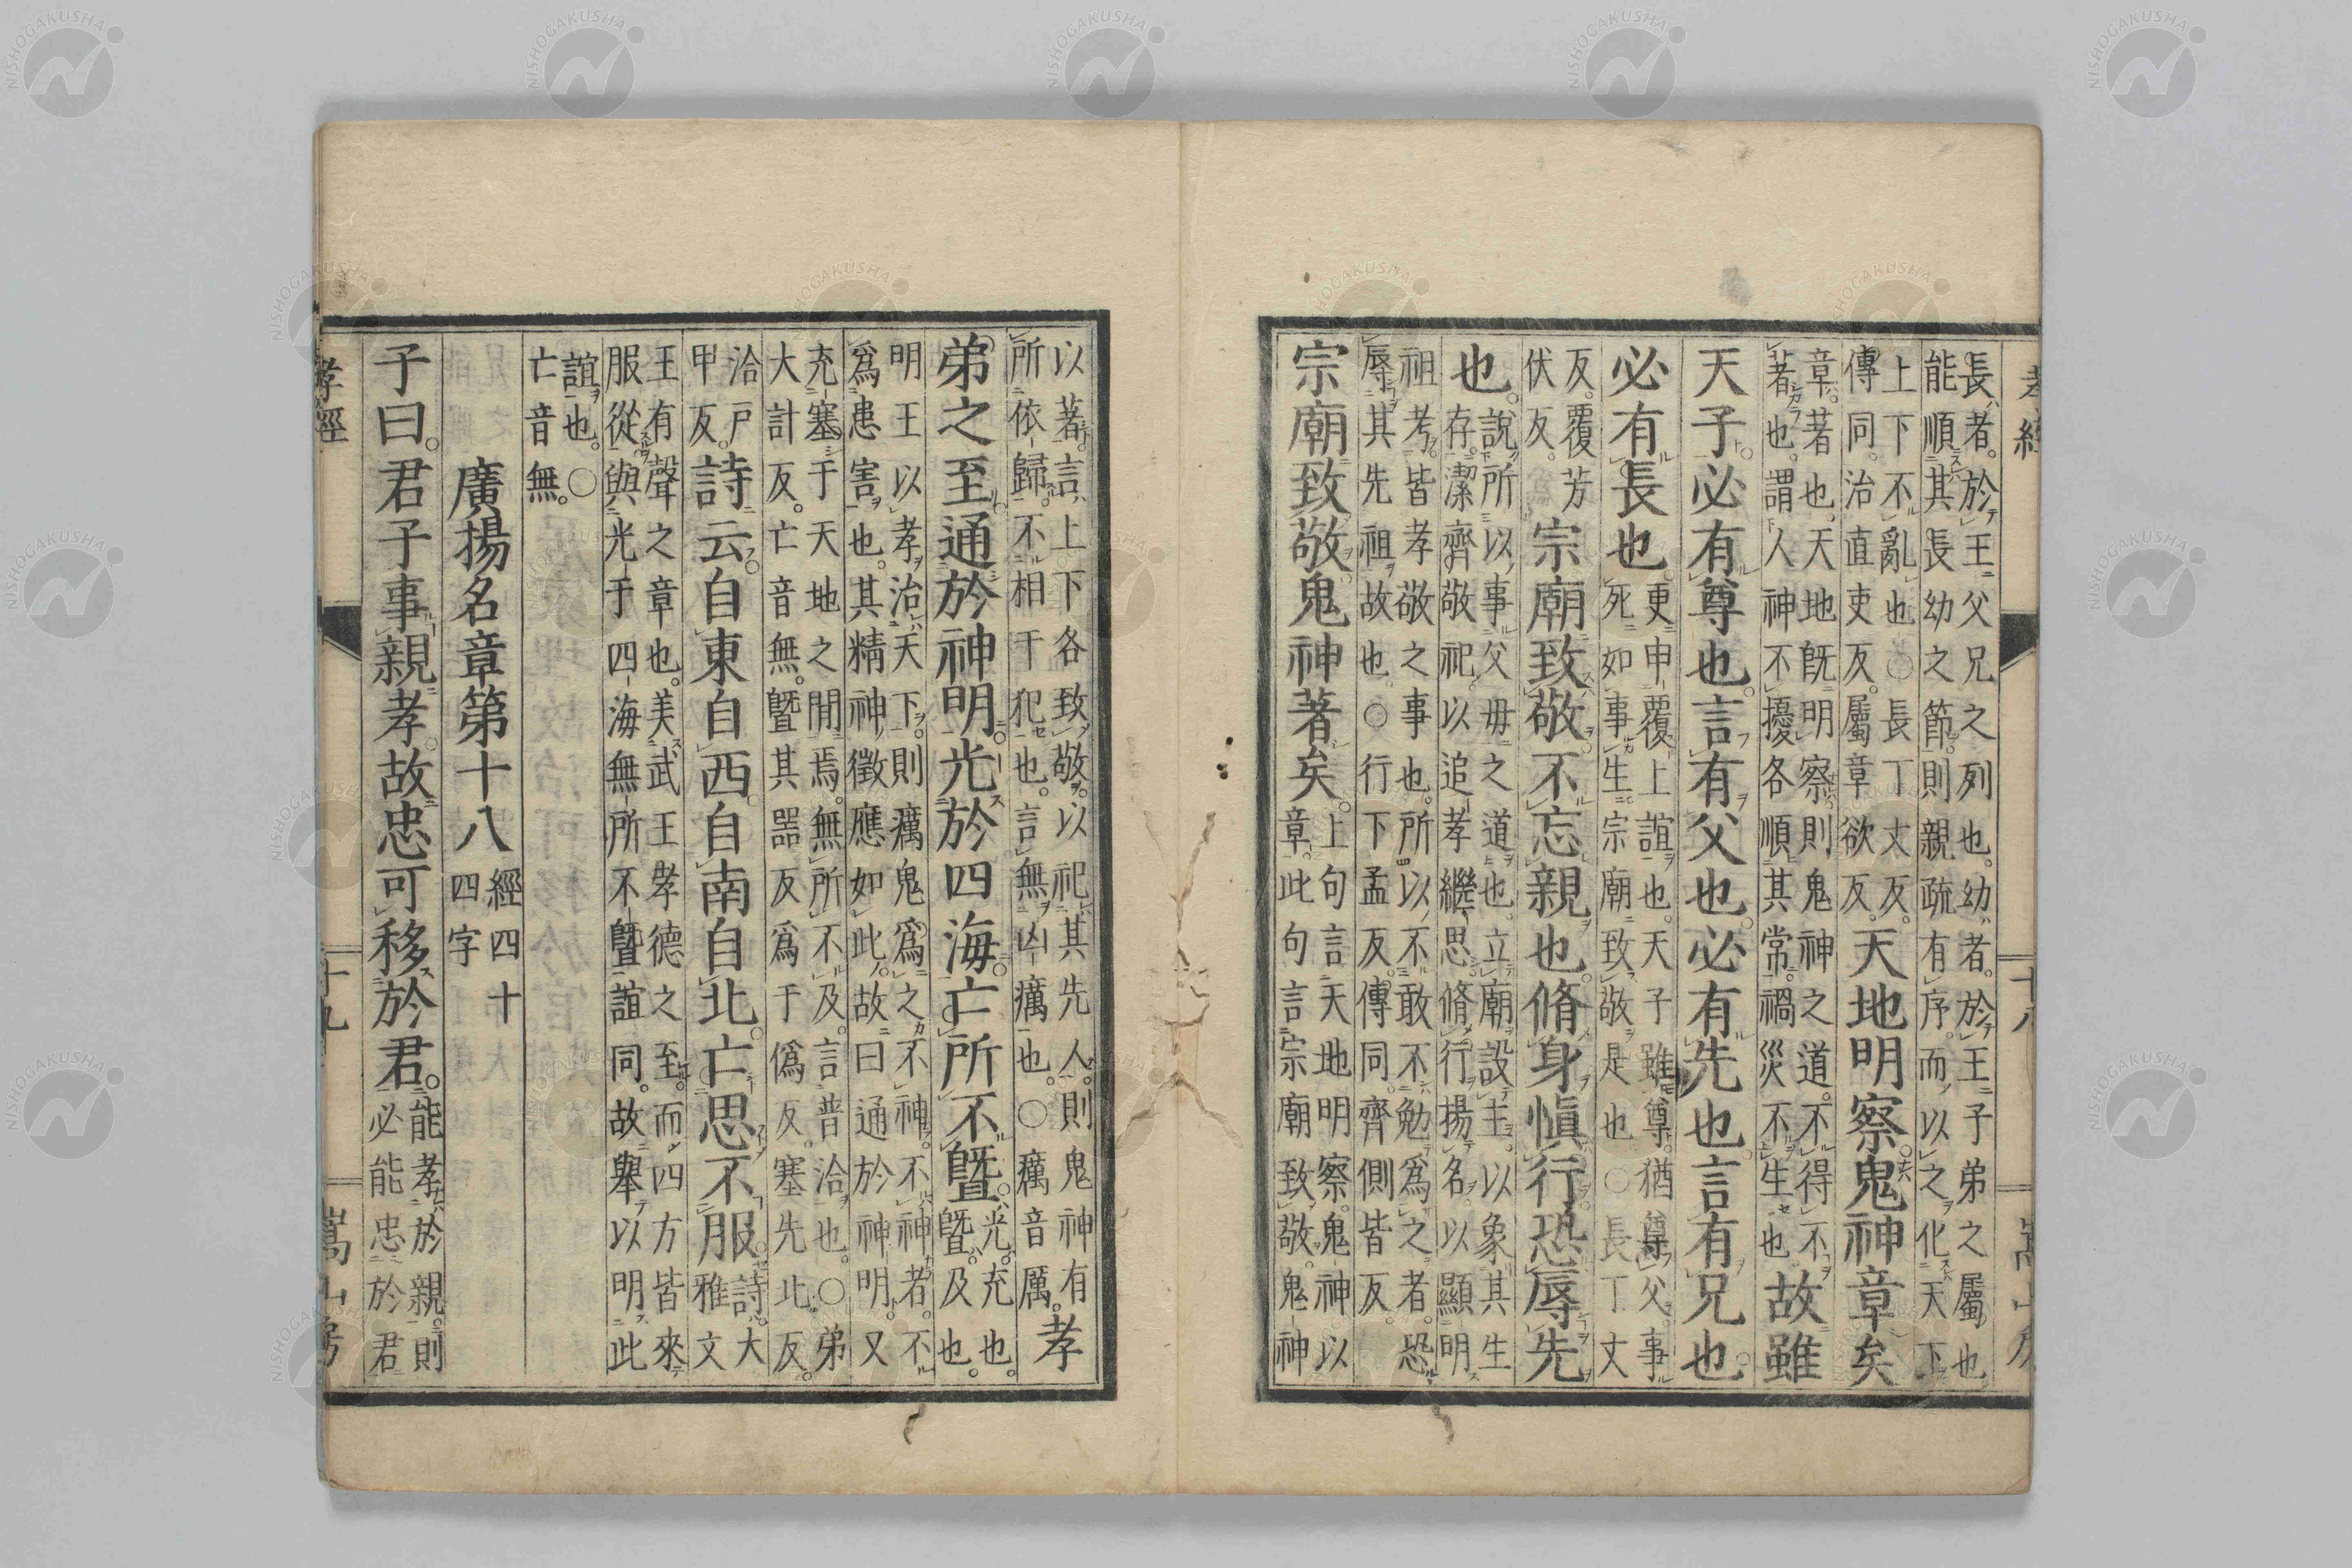 孝經 十八 嵩山房
長者。於王父兄之列也。幼者。於王子弟之屬也。
能順其長幼之節。則親疏有序。而以之化天下
上下不亂也○長丁丈反。
傳同。治直吏反。屬章欲反。
天地明察。鬼神章矣
章。著也。天地既明察。則鬼神之道。不得不
著也。謂人神不擾。各順其常。禍災不生也。
故雖
天子。必有尊也。言有父也。必有先也。言有兄也。
必有長也。
更申覆上誼也。天子雖尊。猶尊父。事
死如事生。宗廟致敬是也。○長丁丈
反。覆芳
伏反。
宗廟致敬。不忘親也。脩身愼行。恐辱先
也。
說所以事父母之道也。立廟設主。以象其生
存。潔齊敬祀。以追孝繼思。脩行揚名。以顯明
祖考。皆孝敬之事也。所以不敢不勉爲之者。恐
辱其先祖故也。○行下孟反。傳同。齊側皆反。
宗廟致敬。鬼神著矣。
上句言天地明察。鬼神以
章。此句言宗廟致敬。鬼神
以著。言上下各致敬。以祀其先人。則鬼神有
所依歸。不相干犯也。言無凶癘也。○癘音厲。
孝
弟之至。通於神明。光於四海。亡所不曁。
光。充也。
曁。及也。
明王以孝治天下。則癘鬼爲之不神。不神者。不
爲患害也。其精神徵應如此。故曰通於神明。又
充塞于天地之閒焉。無所不及。言普洽也。○弟
大計反。亡音無。曁其器反爲于僞反。塞先北反。
洽戶
甲反。
詩云。自東自西。自南自北。亡思不服。
詩。大
雅文
王有聲之章也。美武王孝德之至。而四方皆來
服從。與光于四海無所不曁誼同。故舉以明此
誼也。○
亡音無。
廣揚名章第十八
經四十
四字
子曰。君子事親孝。故忠可移於君。
能孝於親。則
必能忠於君
孝經 十九 嵩山房